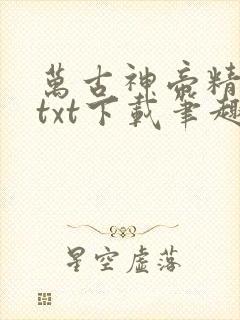 萬古神帝精
txt下載筆趣
星空虛落